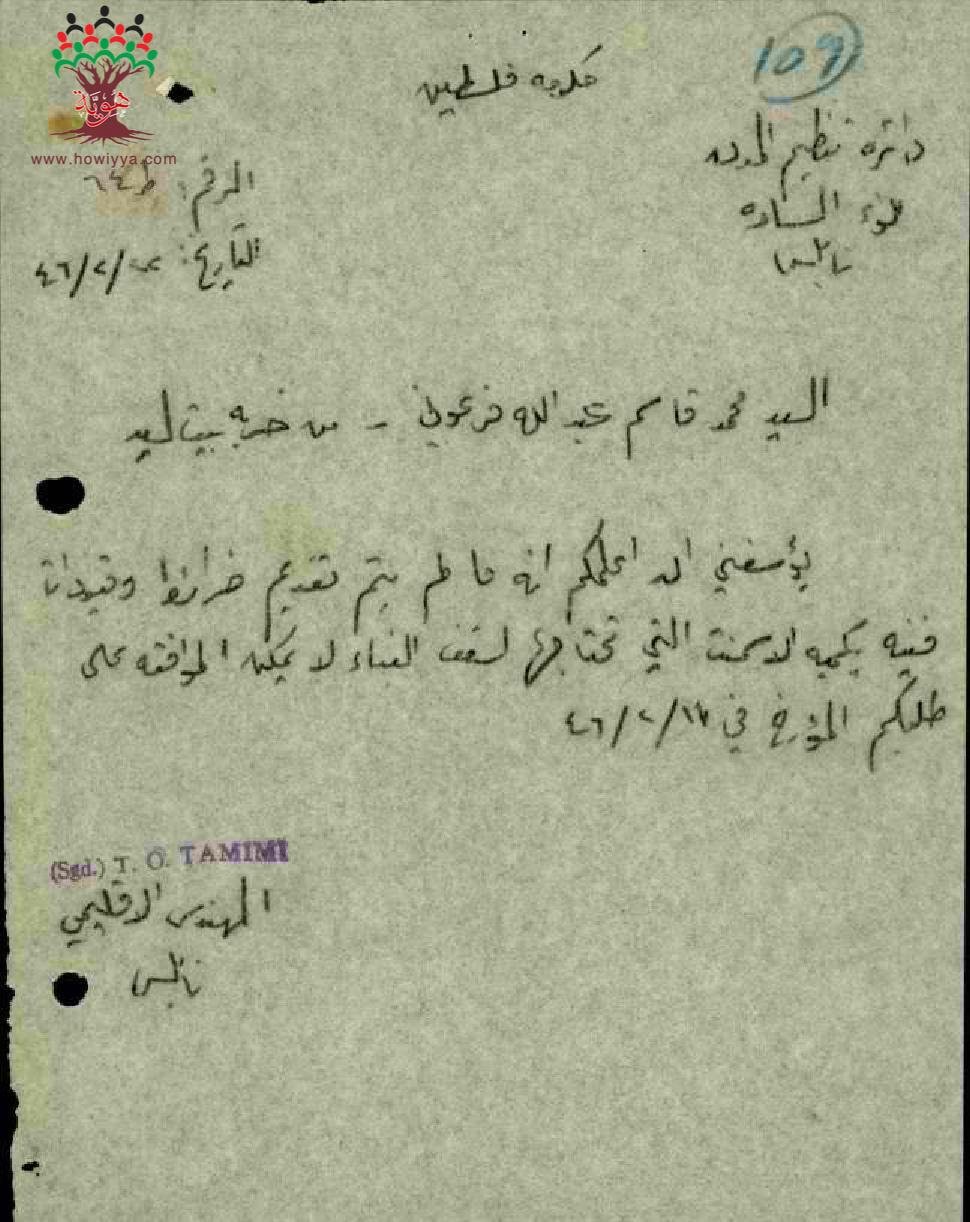 109
هوية
www.howiyya.com
حكومة فلسطين
دائرة تنظيم المدن
لواء السامرة
نابلس
الرقم: ط ٦٤
التاريخ: /٢/٤٦
السيد محمد قاسم عبد الله فرعوني - من خربة بيت ليد
يؤسفني ان اعلمكم انه ما لم يتم تقديم خرائط
فنيه بكميه الاسمنت التي تحتاجها لسقف البناء لا يمكن الموافقه على
طلبكم المؤرخ في ١٧/٢/٤٦
(Sgd.) T. O. TAMIMI
المهندس الاقليمي
نابلس